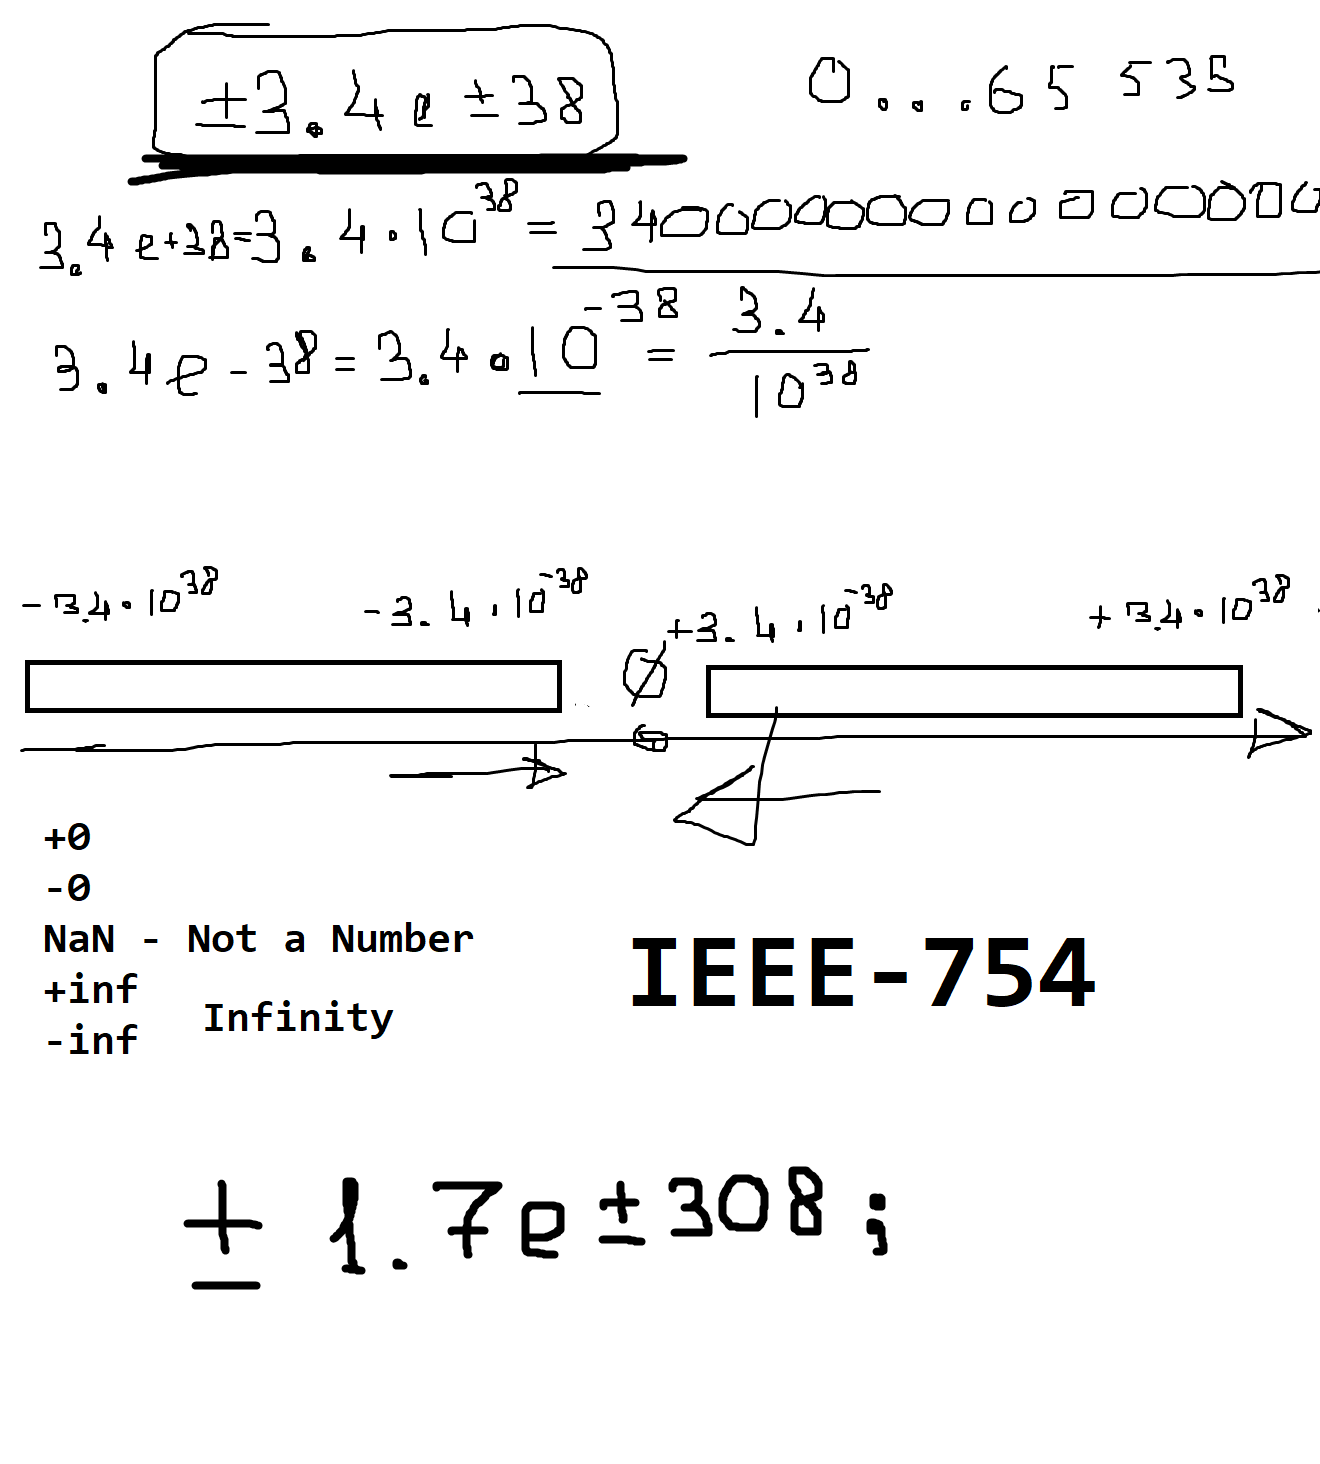 ±3.4e±38
0...65 535
3.4e+38=3.4·10^38 = 34000000000000000
3.4e-38 = 3.4·10^-38 = 3.4/10^38
-3.4·10^38 -3.4·10^-38 0 +3.4·10^-38 +3.4·10^38
+0
-0
NaN - Not a Number
+inf
Infinity
-inf
IEEE-754
±1.7e±308;